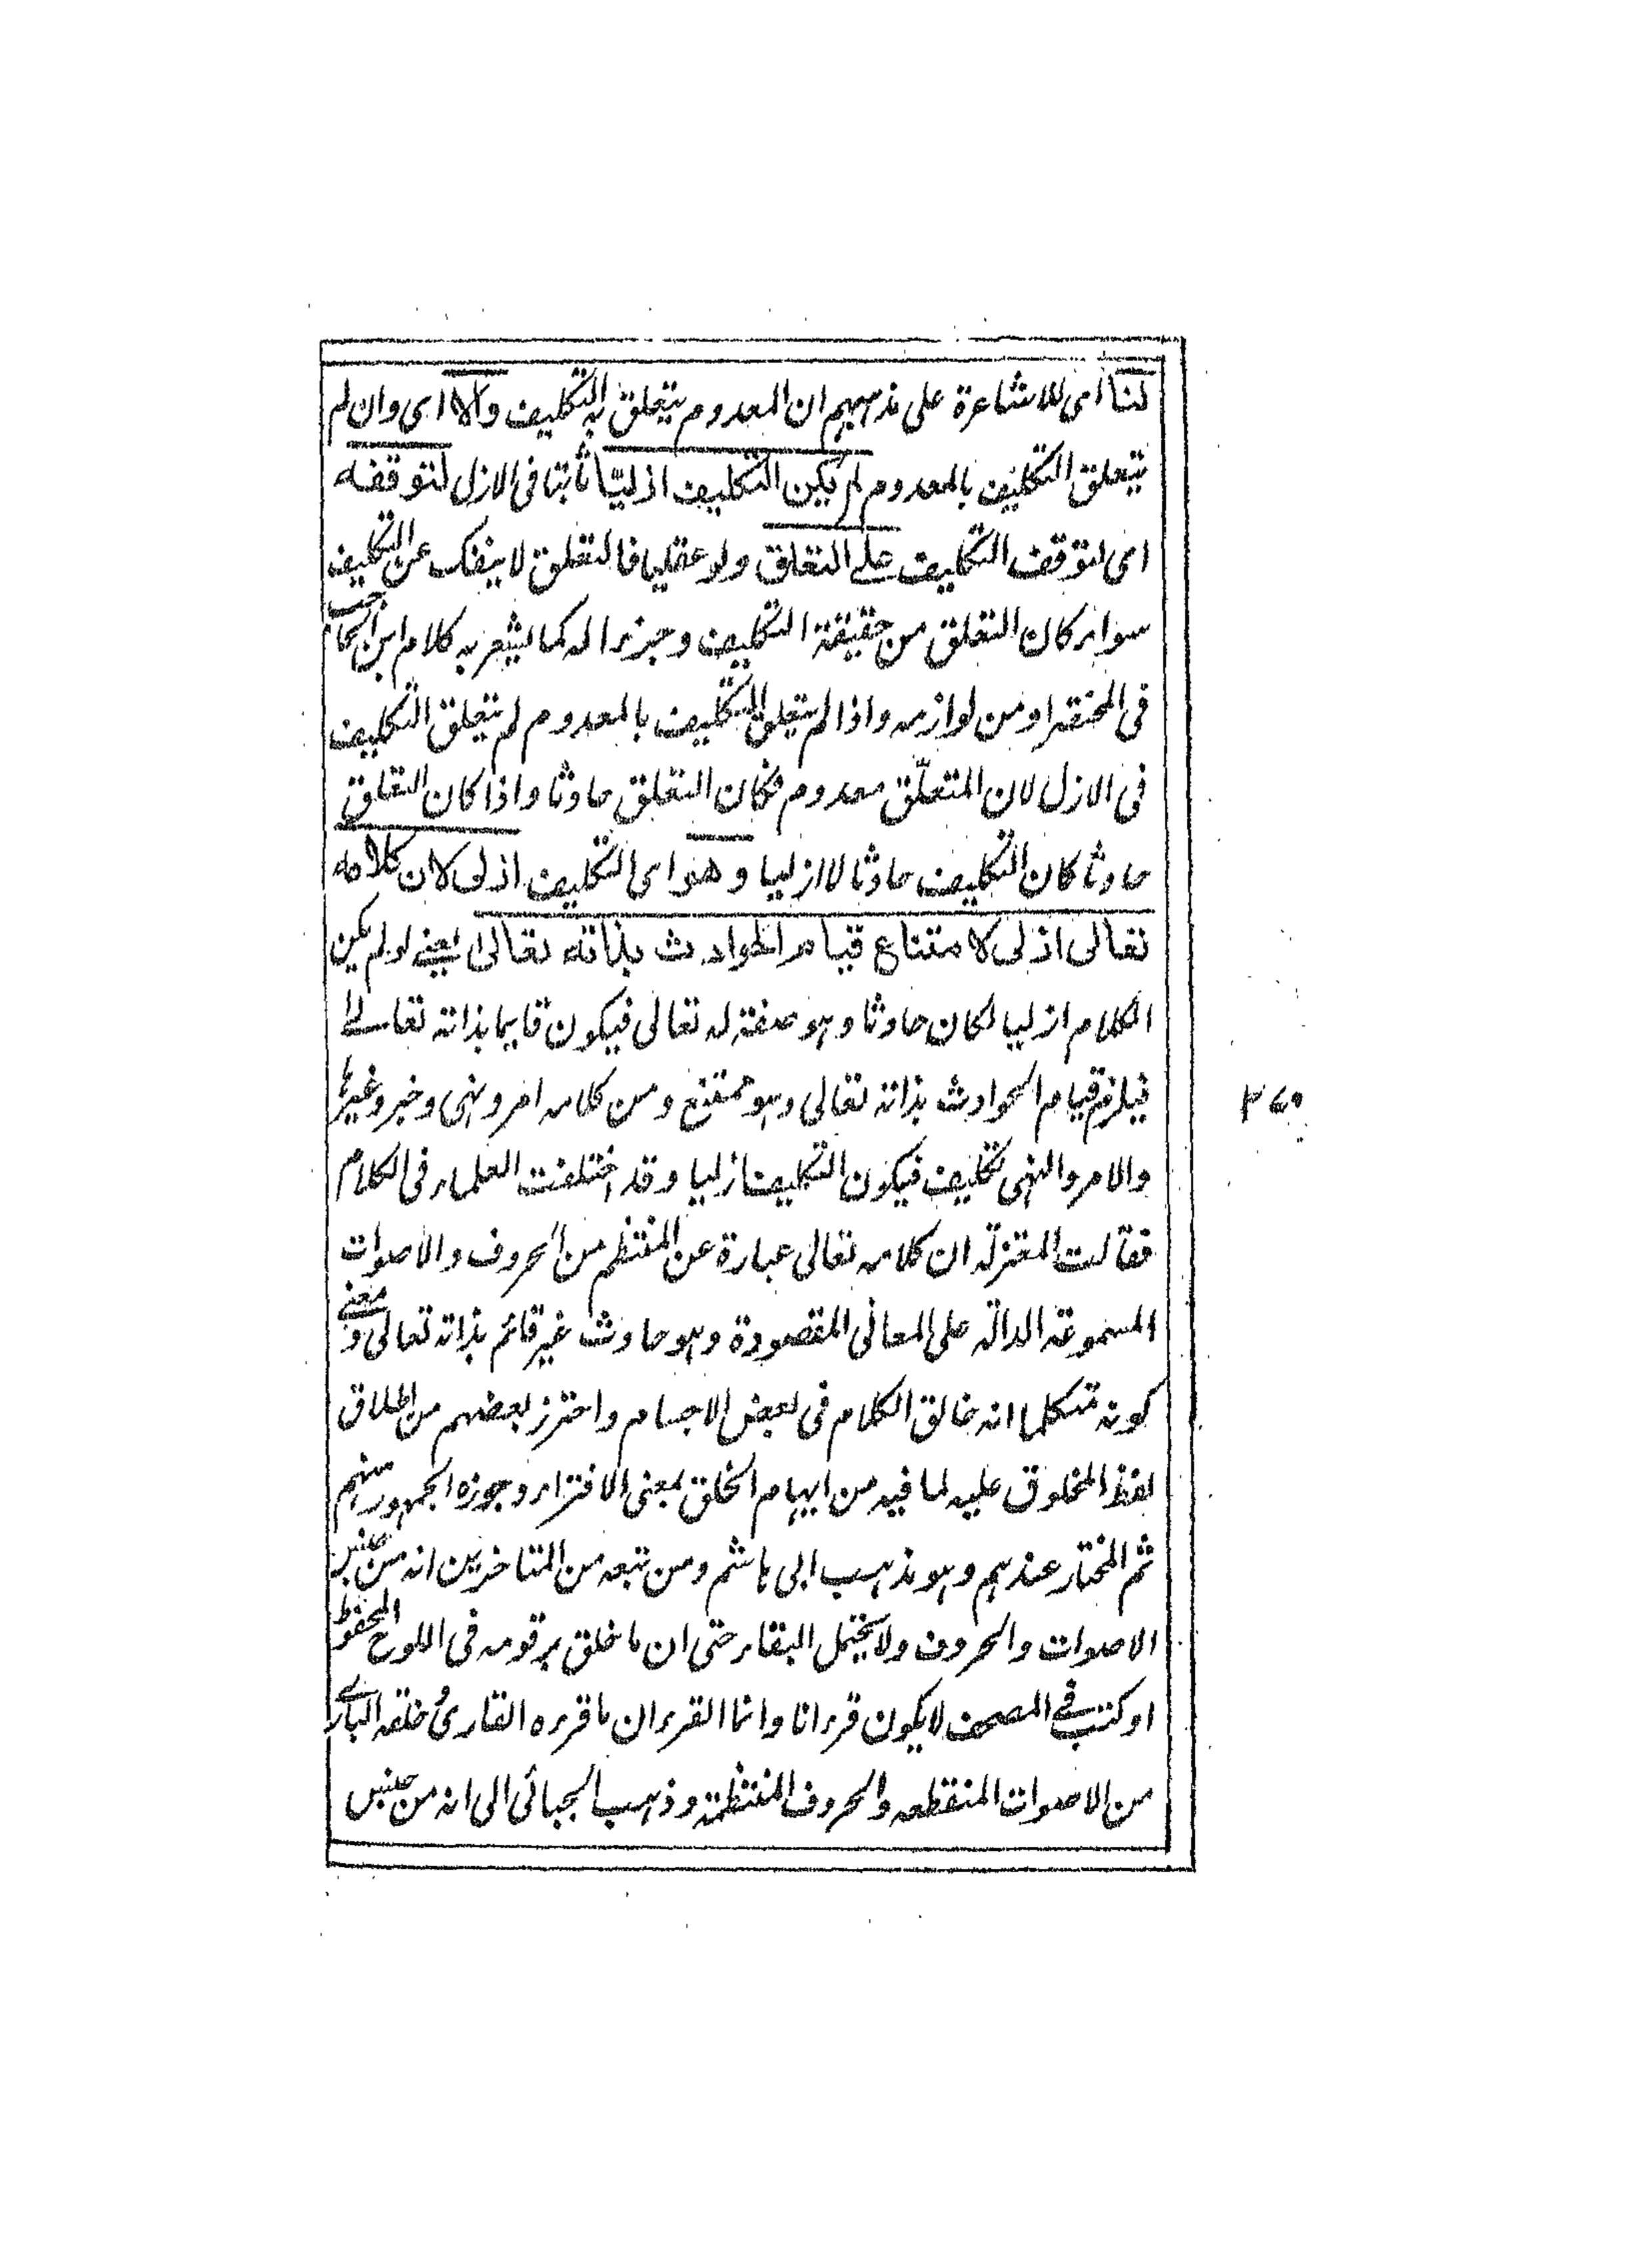 لنا اى للاشاعرة على مذهبهم ان المعدوم يتعلق به التكليف والا اى وان لم
يتعلق التكليف بالمعدوم لم يكن التكليف ازليا ثابتا فى الازل لتوقفه
اى لتوقف التكليف على التعلق ولو عقليا فالتعلق لا ينفك عن التكليف
سواء كان التعلق من حقيقة التكليف وجزءا له كما يشعر به كلام ابن الحاجب
فى المختصر او من لوازمه واذا لم يتعلق التكليف بالمعدوم لم يتعلق التكليف
فى الازل لان المتعلّق معدوم فكان التعلق حادثا واذا كان التعلق
حادثا كان التكليف حادثا لا ازليا وهو اى التكليف ازلى لان كلامه
تعالى ازلى لامتناع قيام الحوادث بذاته تعالى يعنے لو لم يكن
الكلام ازليا لكان حادثا وهو صفة له تعالى فيكون قايما بذاته تعالے
فيلزم قيام الحوادث بذاته تعالى وهو ممتنع ومن كلامه امر ونهى وخبر وغيرها
والامر والنهى تكليف فيكون التكليف ازليا وقد اختلفت العلماء فى الكلام
فقالت المعتزلة ان كلامه تعالى عبارة عن المنتظم من الحروف والاصوات
المسموعة الدالّة على المعانى المقصودة وهو حادث غير قائم بذاته تعالى ومعنے
كونه متكلما انه خالق الكلام فى بعض الاجسام واحترز بعضهم من اطلاق
لفظ المخلوق عليه لما فيه من ايهام الخلق بمعنى الافتراء وجوزه الجمهور منهم
ثم المختار عندهم وهو مذهب ابى هاشم ومن تبعه من المتاخرين انه من جنس
الاصوات والحروف ولا يحتمل البقاء حتى ان ما خلق برقومه فى اللوح المحفوظ
او كتب فے المصحف لا يكون قرءانا وانما القرءان ما قرءه القارئ وخلقه البارے
من الاصوات المنقطعه والحروف المنتظمة وذهب الجبائى الى انه من جنس